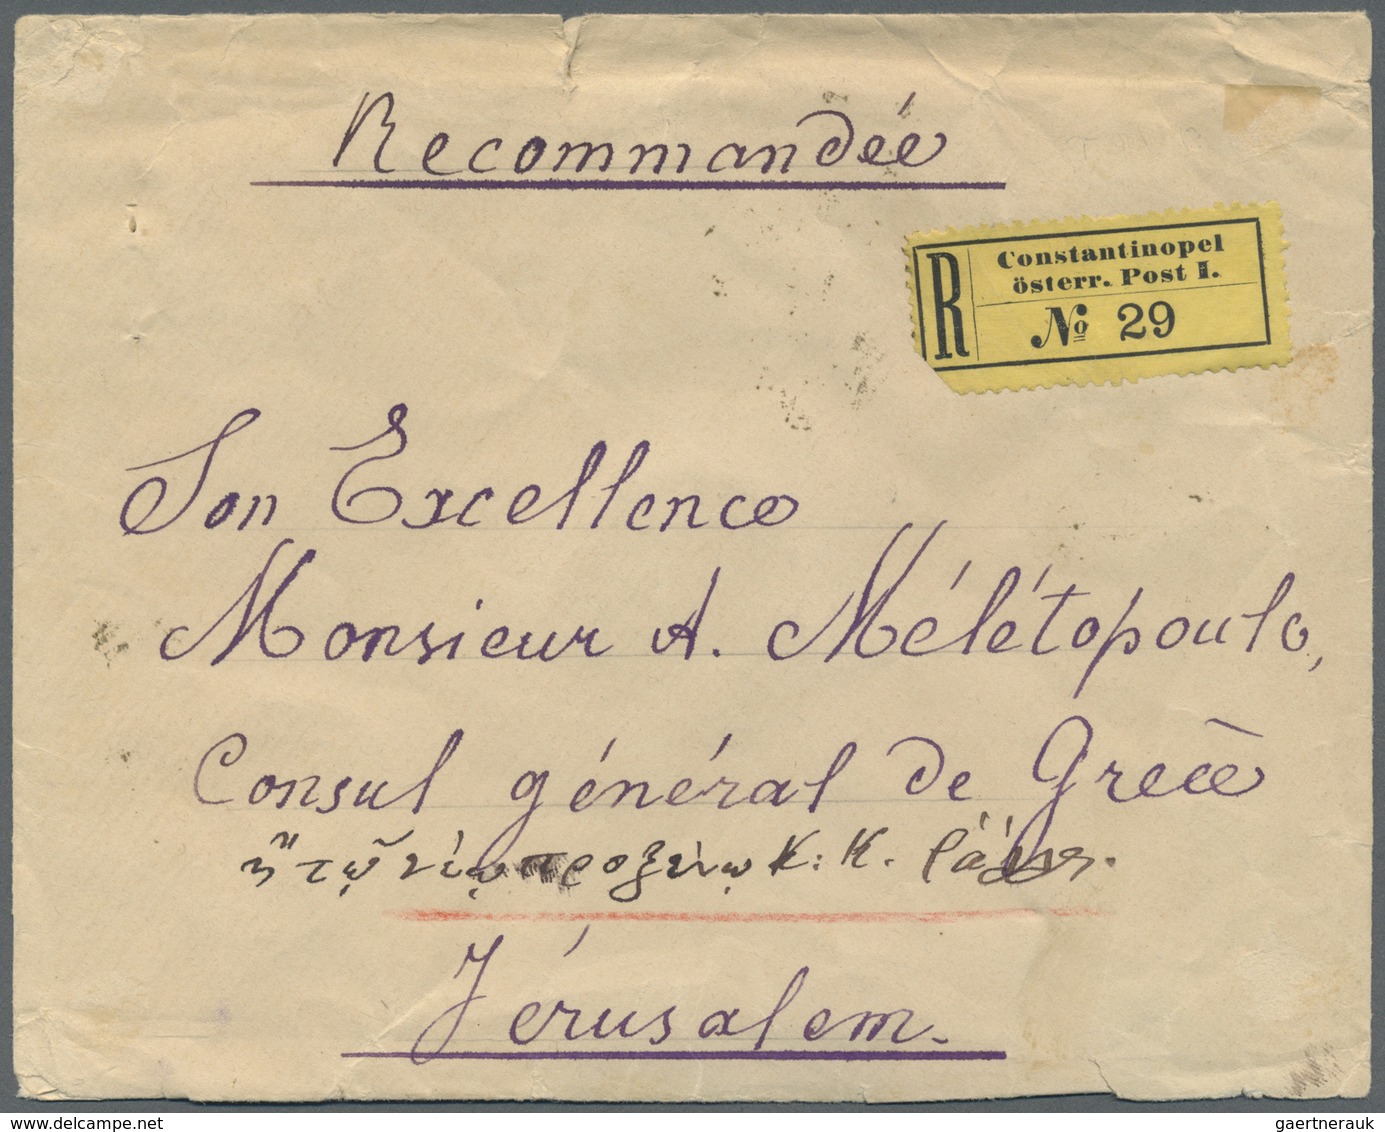 Recommandée
R
Constantinopel
österr. Post I.
№ 29
Son Excellence
Monsieur A. Mélétopoulo,
Consul général de Grèce
ἢ τῷ νέῳ προξένῳ Κ: Κ.
Jérusalem.
gaertnerauk